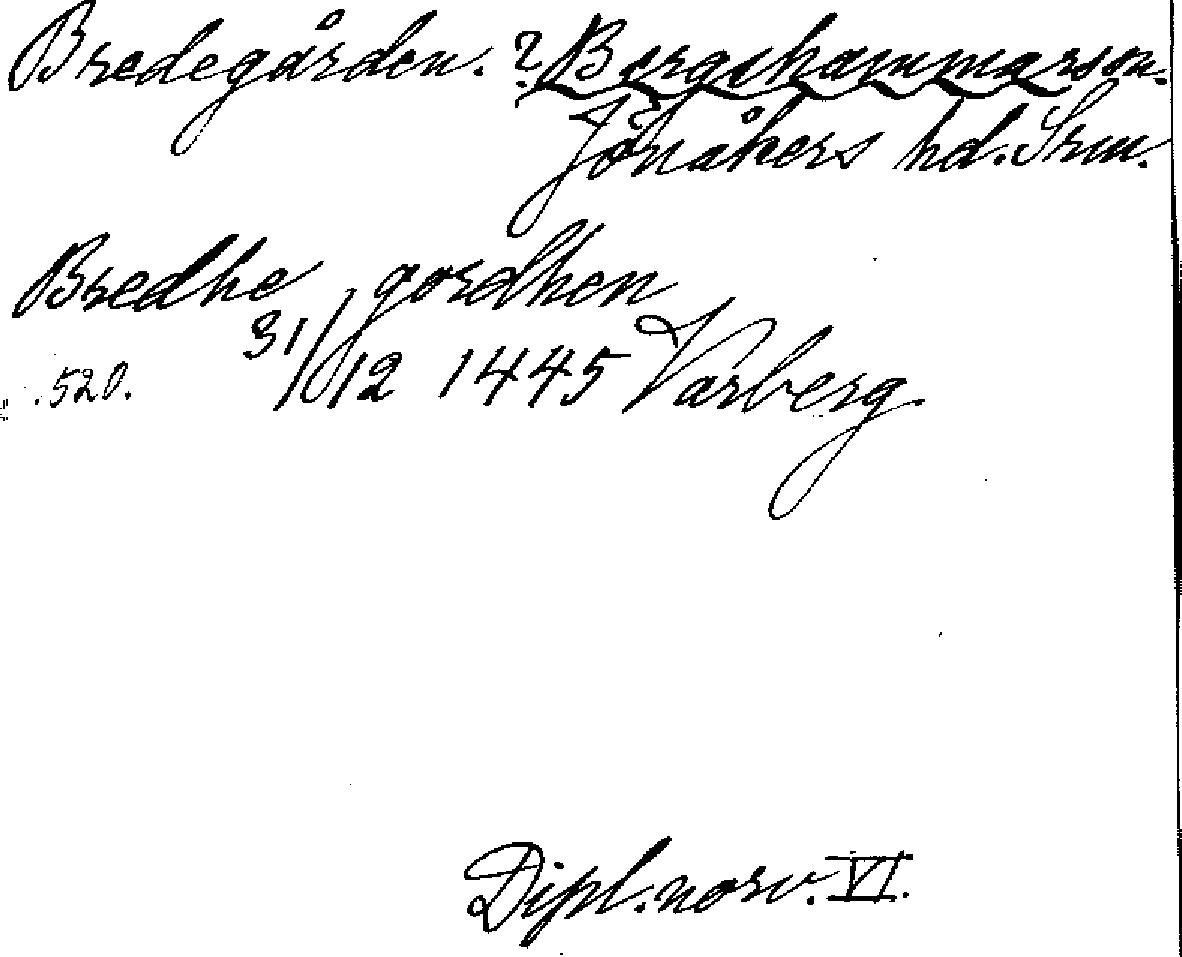 Bredegården. ? Bergshammar sn.
Jönåkers hd. Srm.
Bredhe gordhen
.520. 31/12 1445 Varberg.
Dipl. norv. VI.